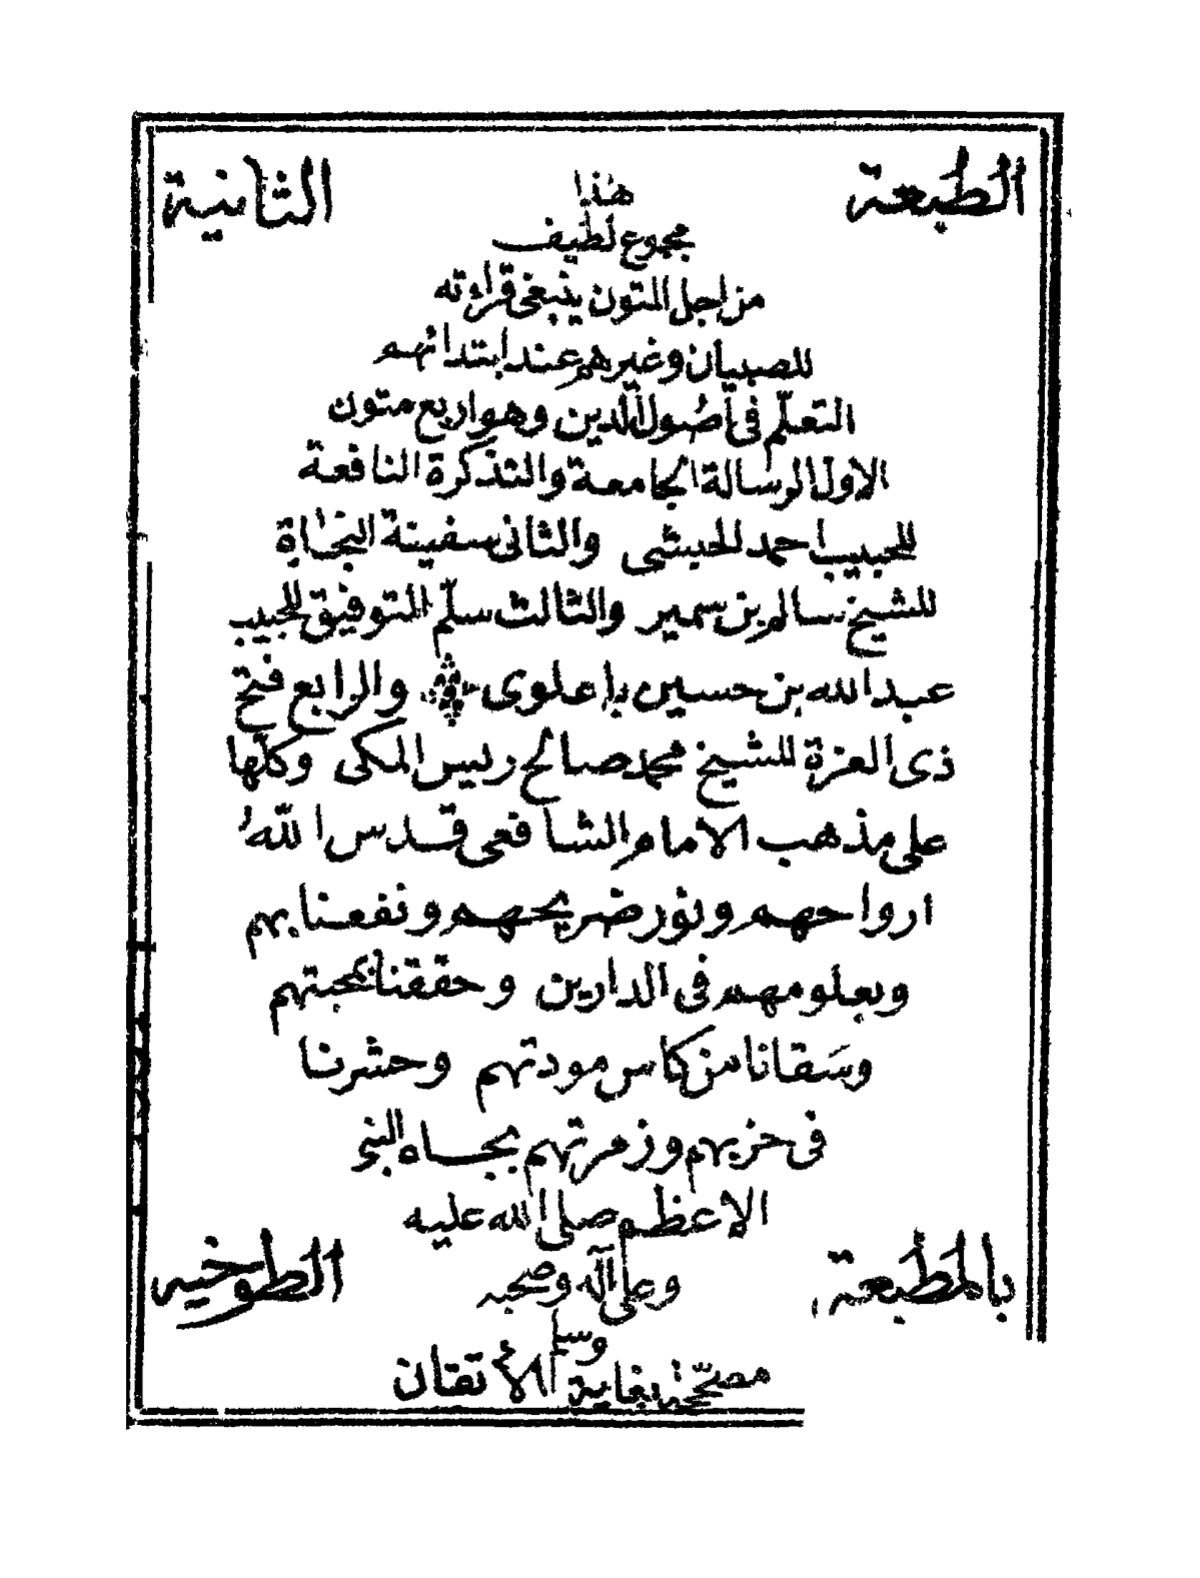 الطبعة
الثانية
هذا
مجموع لطيف
من اجل المتون ينبغى قراءته
للصبيان وغيرهم عند ابتدائهم
التعلّم فى أصُول الدّين وهو اربع متون
الاول الرسالة الجامعة والتذكرة النافعة
للحبيب احمد الحبشى والثانى سفينة النجاة
للشيخ سالم بن سمير والثالث سلّم التوفيق للحبيب
عبد الله بن حسين باعلوى والرابع فتح
ذى العزة للشيخ محمد صالح رييس المكى وكلّها
على مذهب الامام الشافعى قدس اللّٰهُ
ارواحهم ونور ضريحهم ونفعنا بهم
وبعلومهم فى الدارين وحققنا بمحبتهم
وسَقانا من كاس مودتهم وحشرنا
فى حزبهم وزمرتهم بجاه النبى
الاعظم صلى الله عليه
وعلى آله وصحبه
وسلم
بالمَطبعة
الطوخيه
مصحّحة بغاية الأتقان